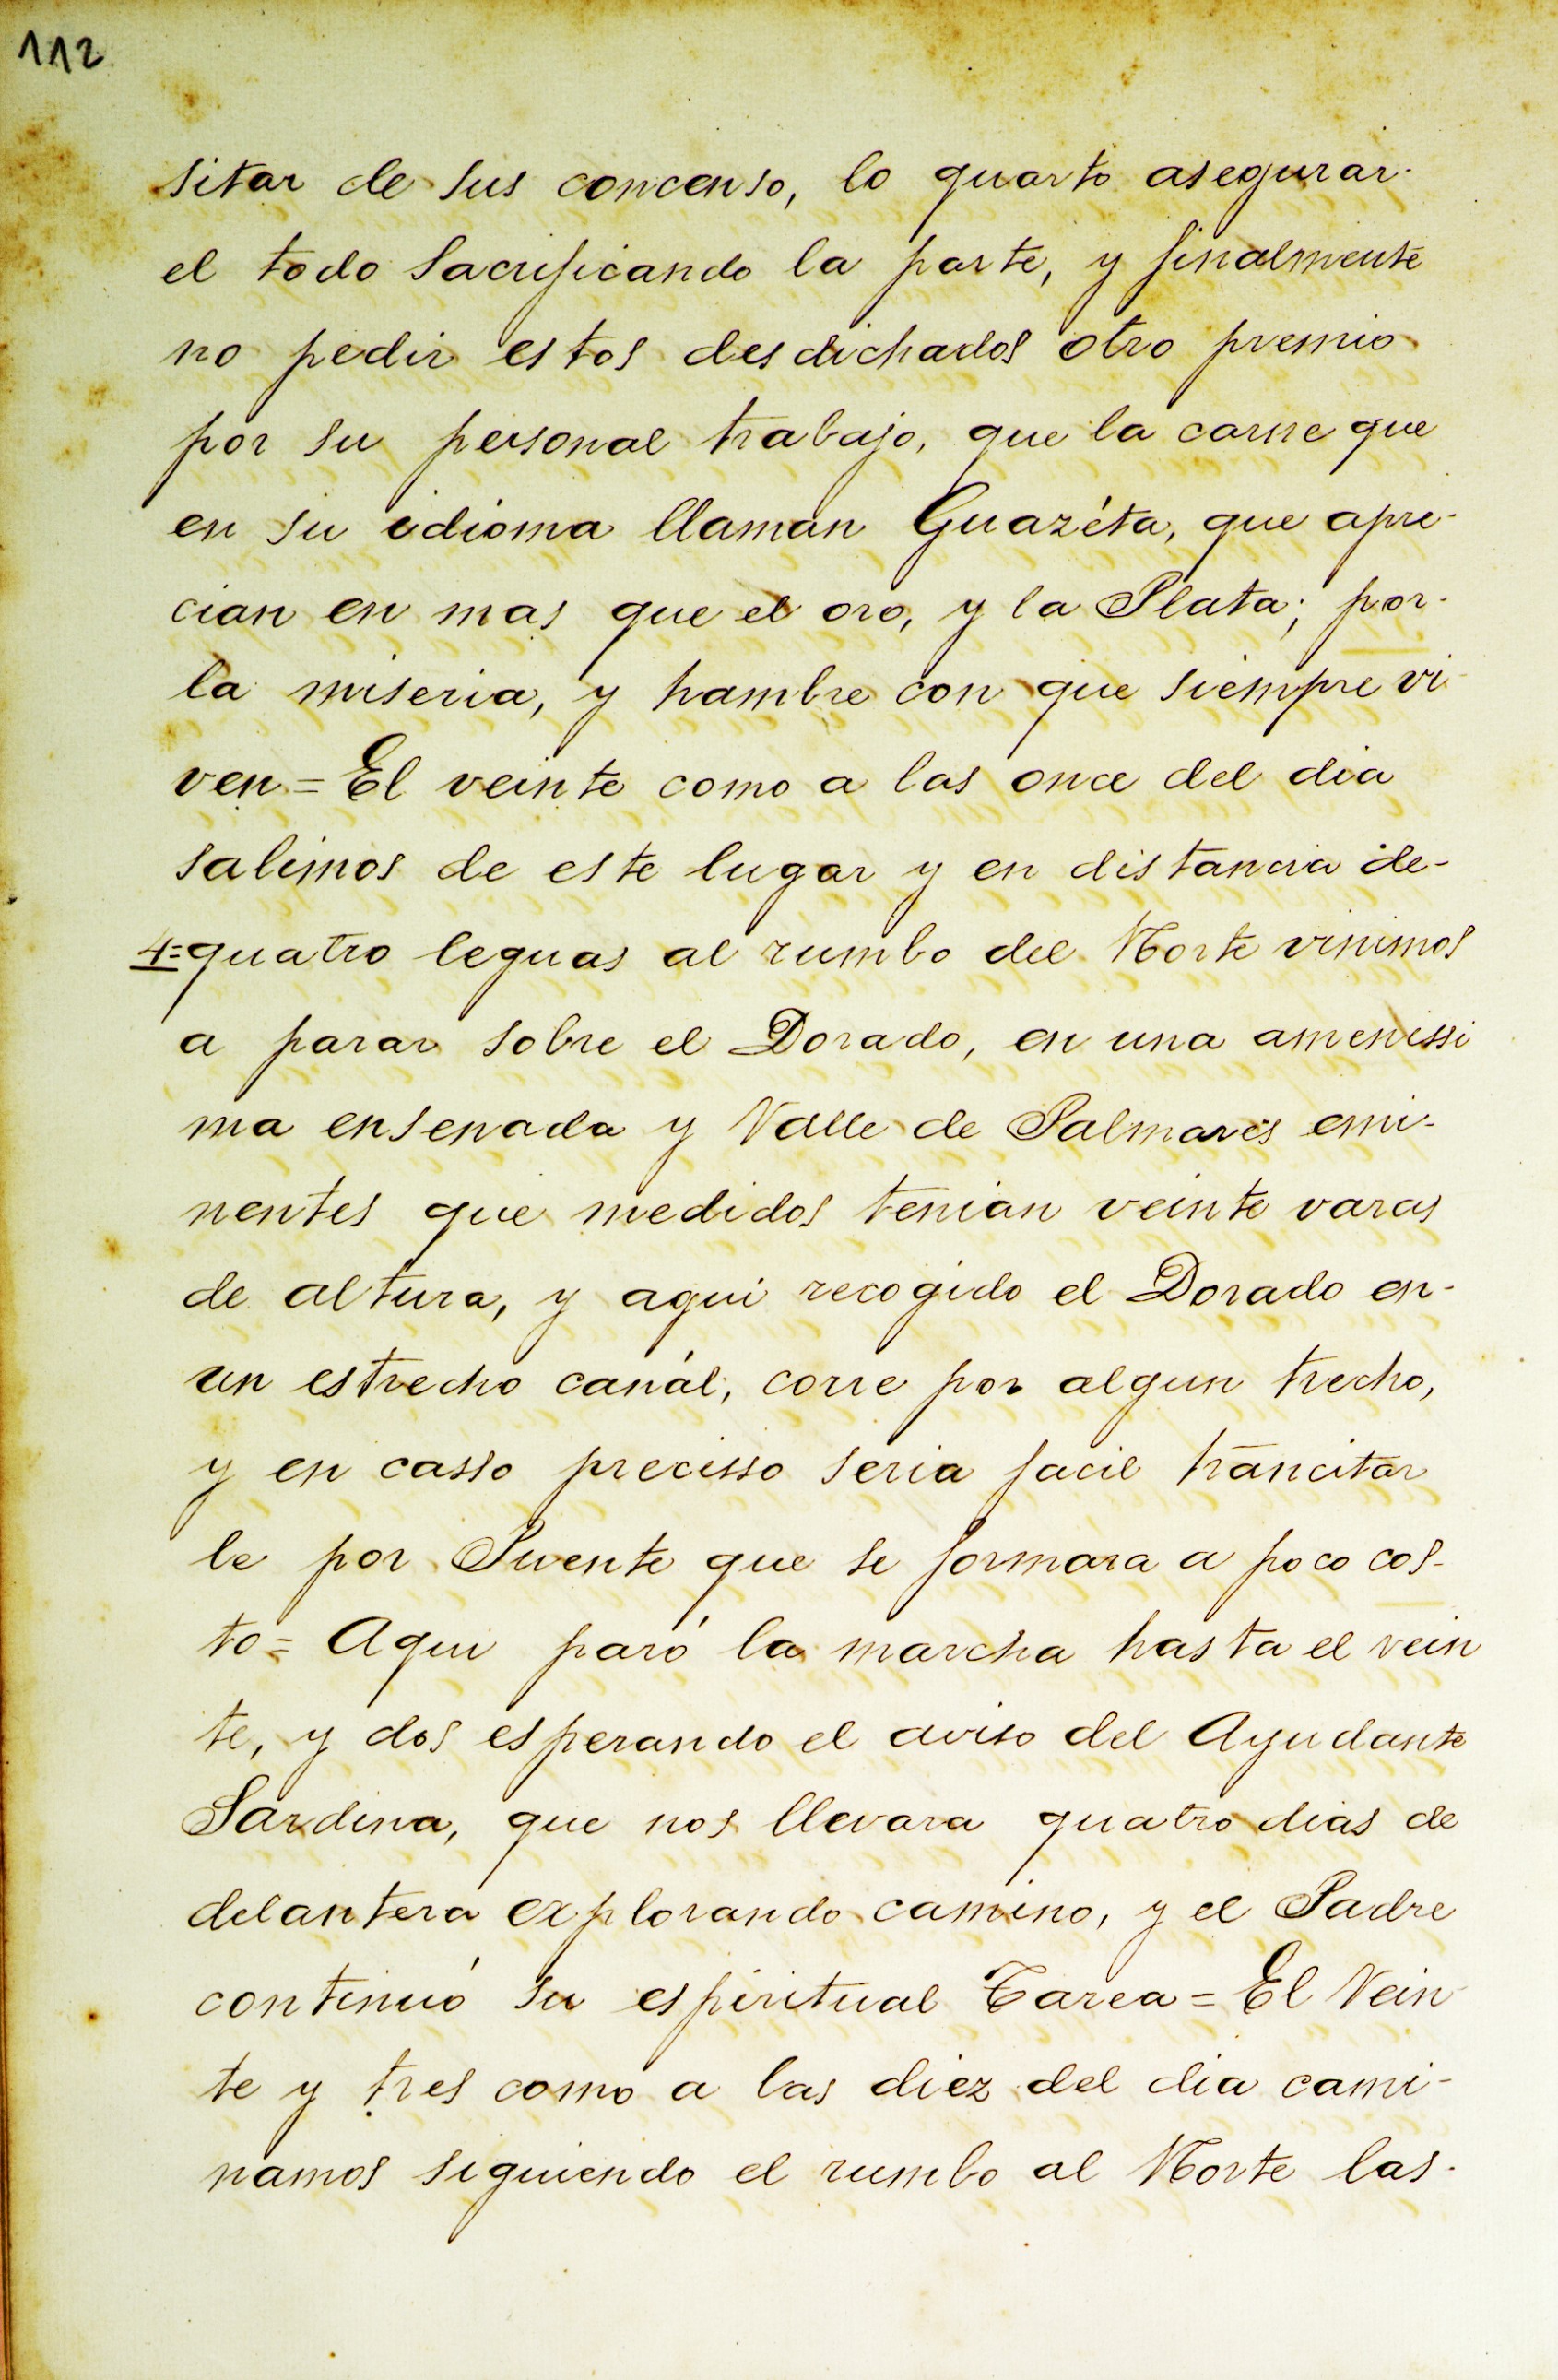 112
sitar de sus concenso, lo quarto asegurar-
el todo sacrificando la parte, y finalmente
no pedir estos desdichados otro premio
por su personal trabajo, que la carne que
en su idioma llaman Guazéta, que apre-
cian en mas que el oro, y la Plata; por-
la miseria, y hambre con que siempre vi-
ven = El veinte como a las once del dia
salimos de este lugar y en distancia de-
4= quatro leguas al rumbo del Norte vinimos
a parar sobre el Dorado, en una amenissi
ma ensenada y Valle de Palmares emi-
nentes que medidos tenian veinte varas
de altura, y aqui recogido el Dorado en-
un estrecho canál, corre por algun trecho,
y en casso precisso seria facil trancitar
le por Puente que se formara a poco cos-
to = Aqui paró la marcha hasta el vein
te, y dos esperando el aviso del Ayudante
Sardina, que nos llevara quatro dias de
delantera explorando camino, y el Padre
continuó su espiritual Tarea = El Vein
te y tres como a las diez del dia cami-
namos siguiendo el rumbo al Norte las-